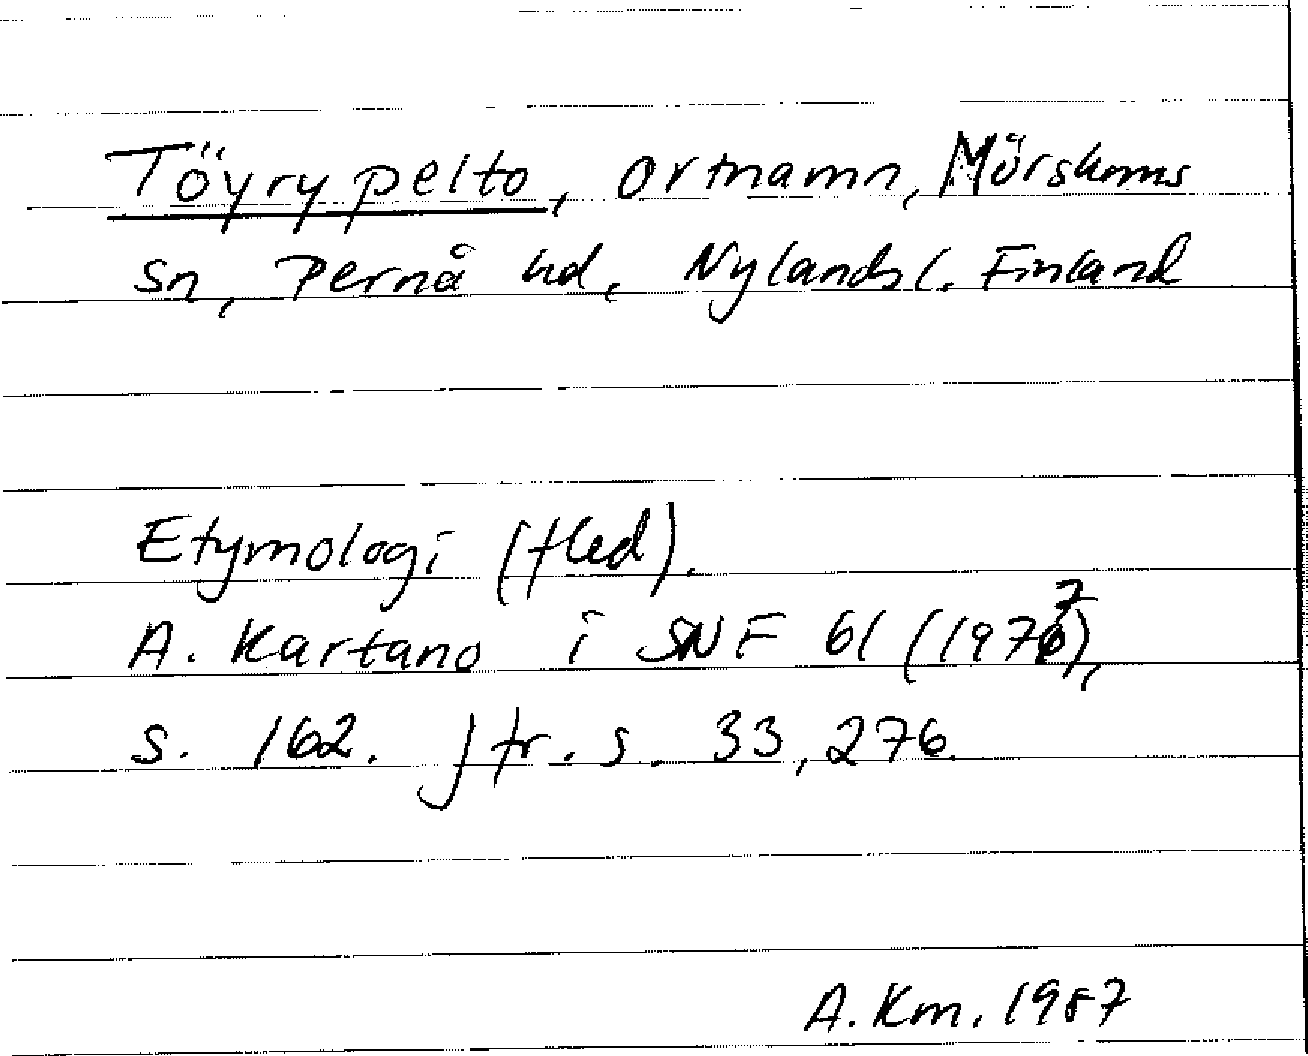 Töyrypelto, ortnamn, Mörskoms
sn, Pernå hd, Nylands l. Finland
Etymologi (fled).
A. Kartano i SNF 61 (1977),
s. 162. Jfr. s. 33, 276.
A. Km. 1987